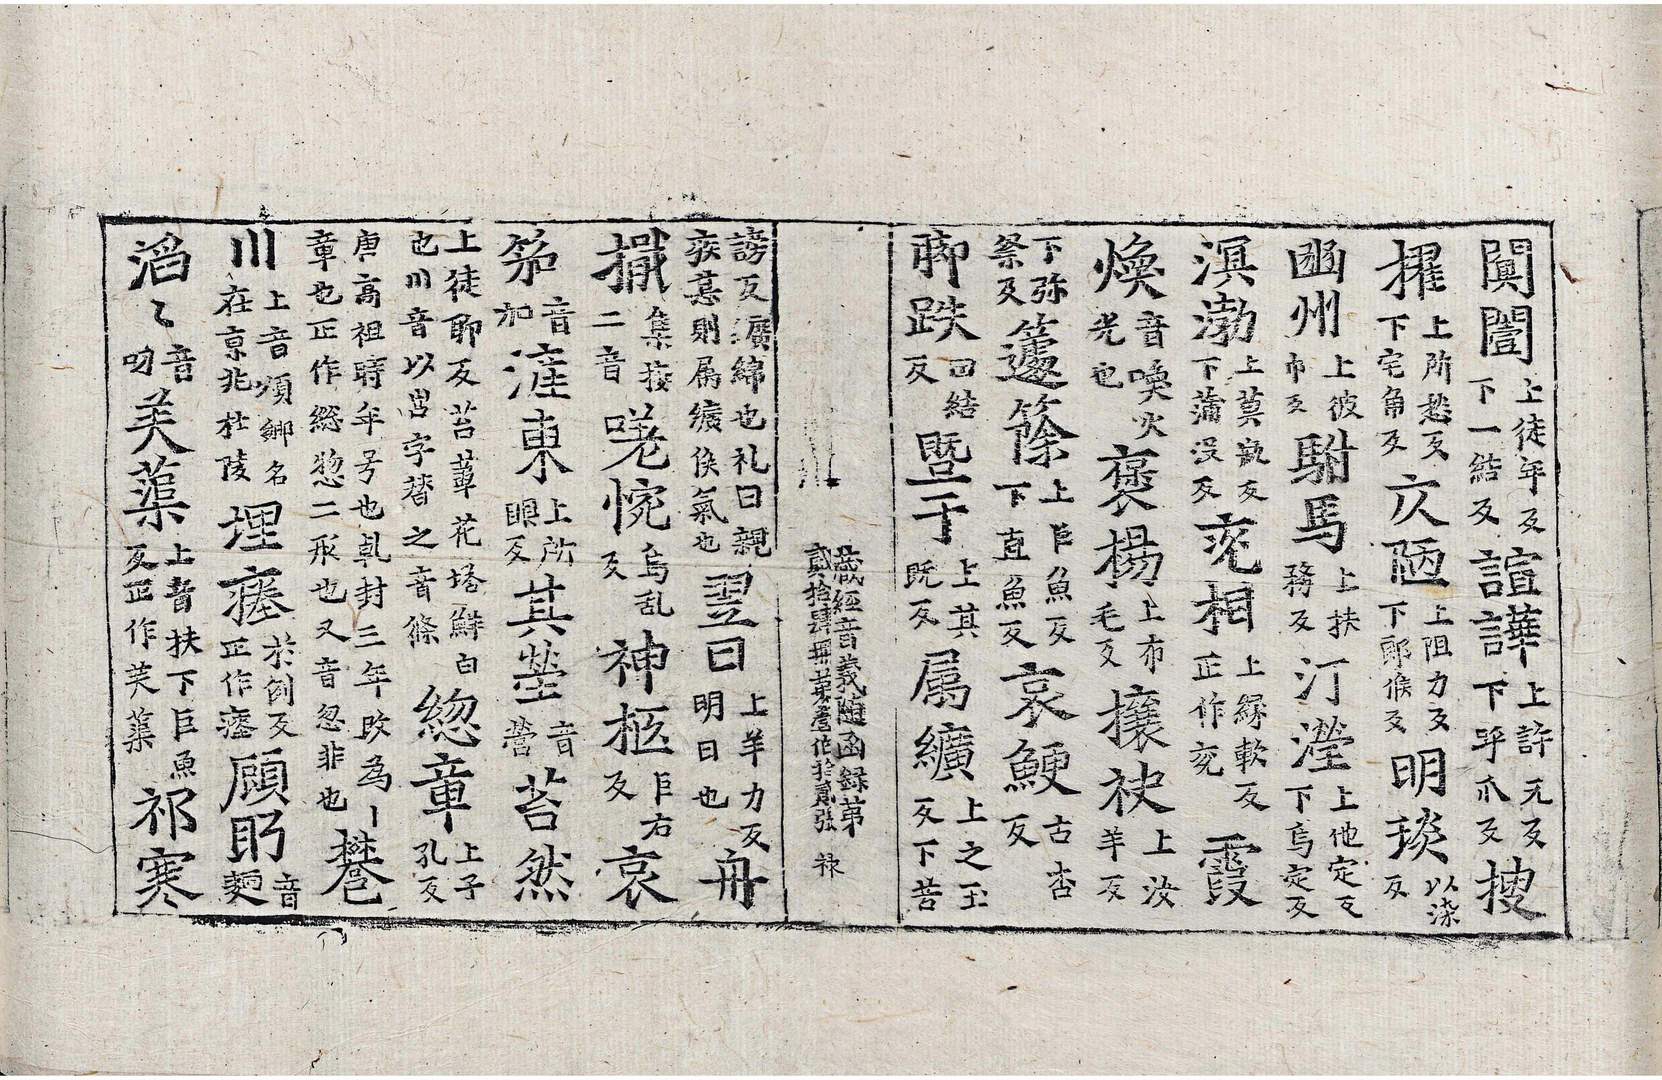 闐闔上徒年反下一結反諠譁上許元反下乎爪反搜
擢上所愁反下宅角反仄陋上阻力反下郎候反明琰以染反
豳州上彼巾反駙馬上扶務反汀瀅上他定反下烏定反
溟渤上莫瓶反下蒲没反兖相上緣軟反正作兖霞
煥音喚火光也褒楊上布毛反攘袂上汝羊反
下弥祭反籧篨上巨魚反下直魚反哀鯁古杏反
郰跌田結反暨于上其既反属纊上之玉反下苦
藏經音義随函録弟
貳拾肆冊第 作拾貳張 禄
謗反纊綿也礼曰親
疾甚則属纊侯氣也翌日上羊力反明日也舟
檝集接二音嗟惋烏乱反神柩巨右反哀
笳音加漼東上所眼反其塋音營苔然
上徒聊反苔葦花塔鮮白
也川音以㠯字替之音條緫章上子孔反
唐高祖時年号也乹封三年改為丨
章也正作総惣二形也又音忽非也
川上音順鄉名在京兆杜陵埋瘞於例反正作瘞顧眄音麺
滔〻音叨芙蕖上音扶下巨魚反正作芙蕖祁寒